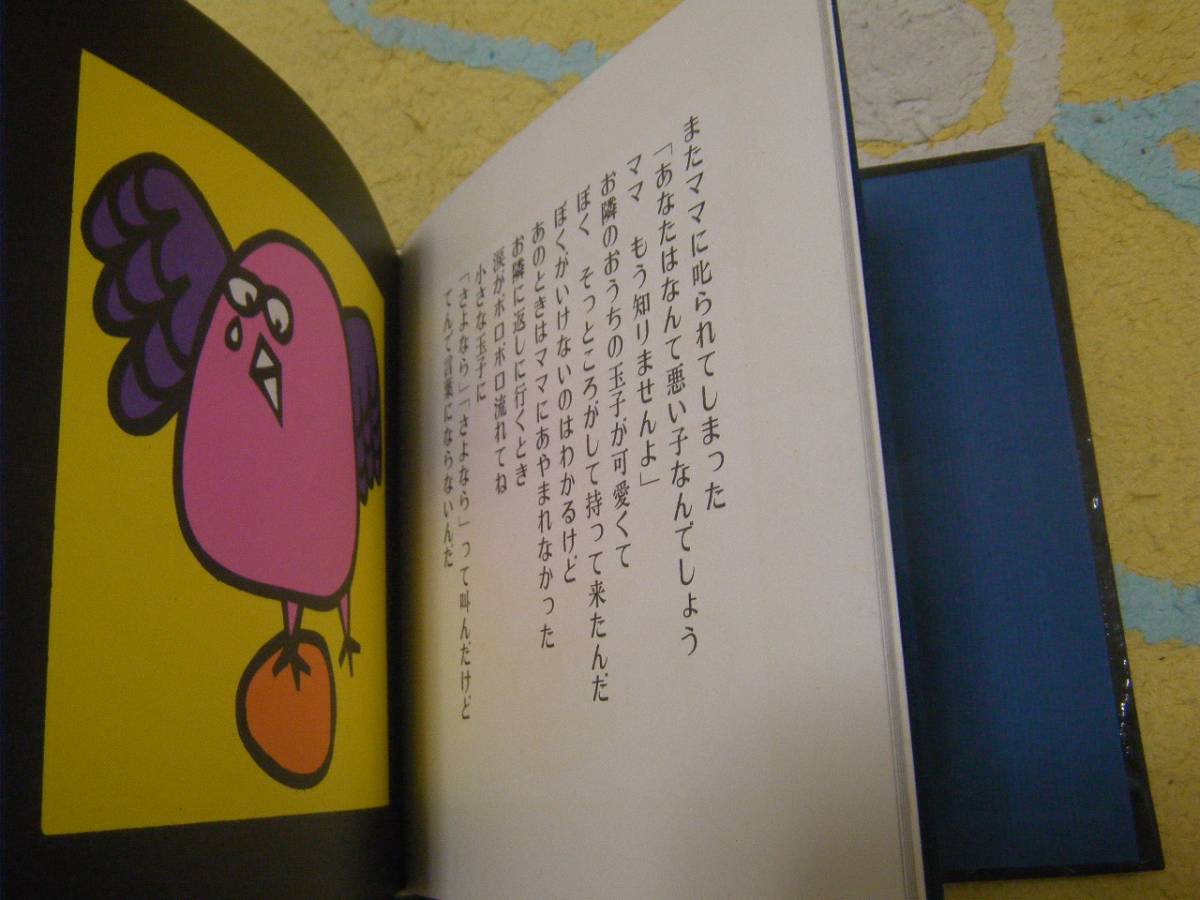 またママに叱られてしまった
「あなたはなんて悪い子なんでしょう
ママ　もう知りませんよ」
お隣のおうちの玉子が可愛くて
ぼく　そっところがして持って来たんだ
ぼくがいけないのはわかるけど
あのときはママにあやまれなかった
お隣に返しに行くとき
涙がポロポロ流れてね
小さな玉子に
「さよなら」「さよなら」って叫んだけど
てんで言葉にならないんだ